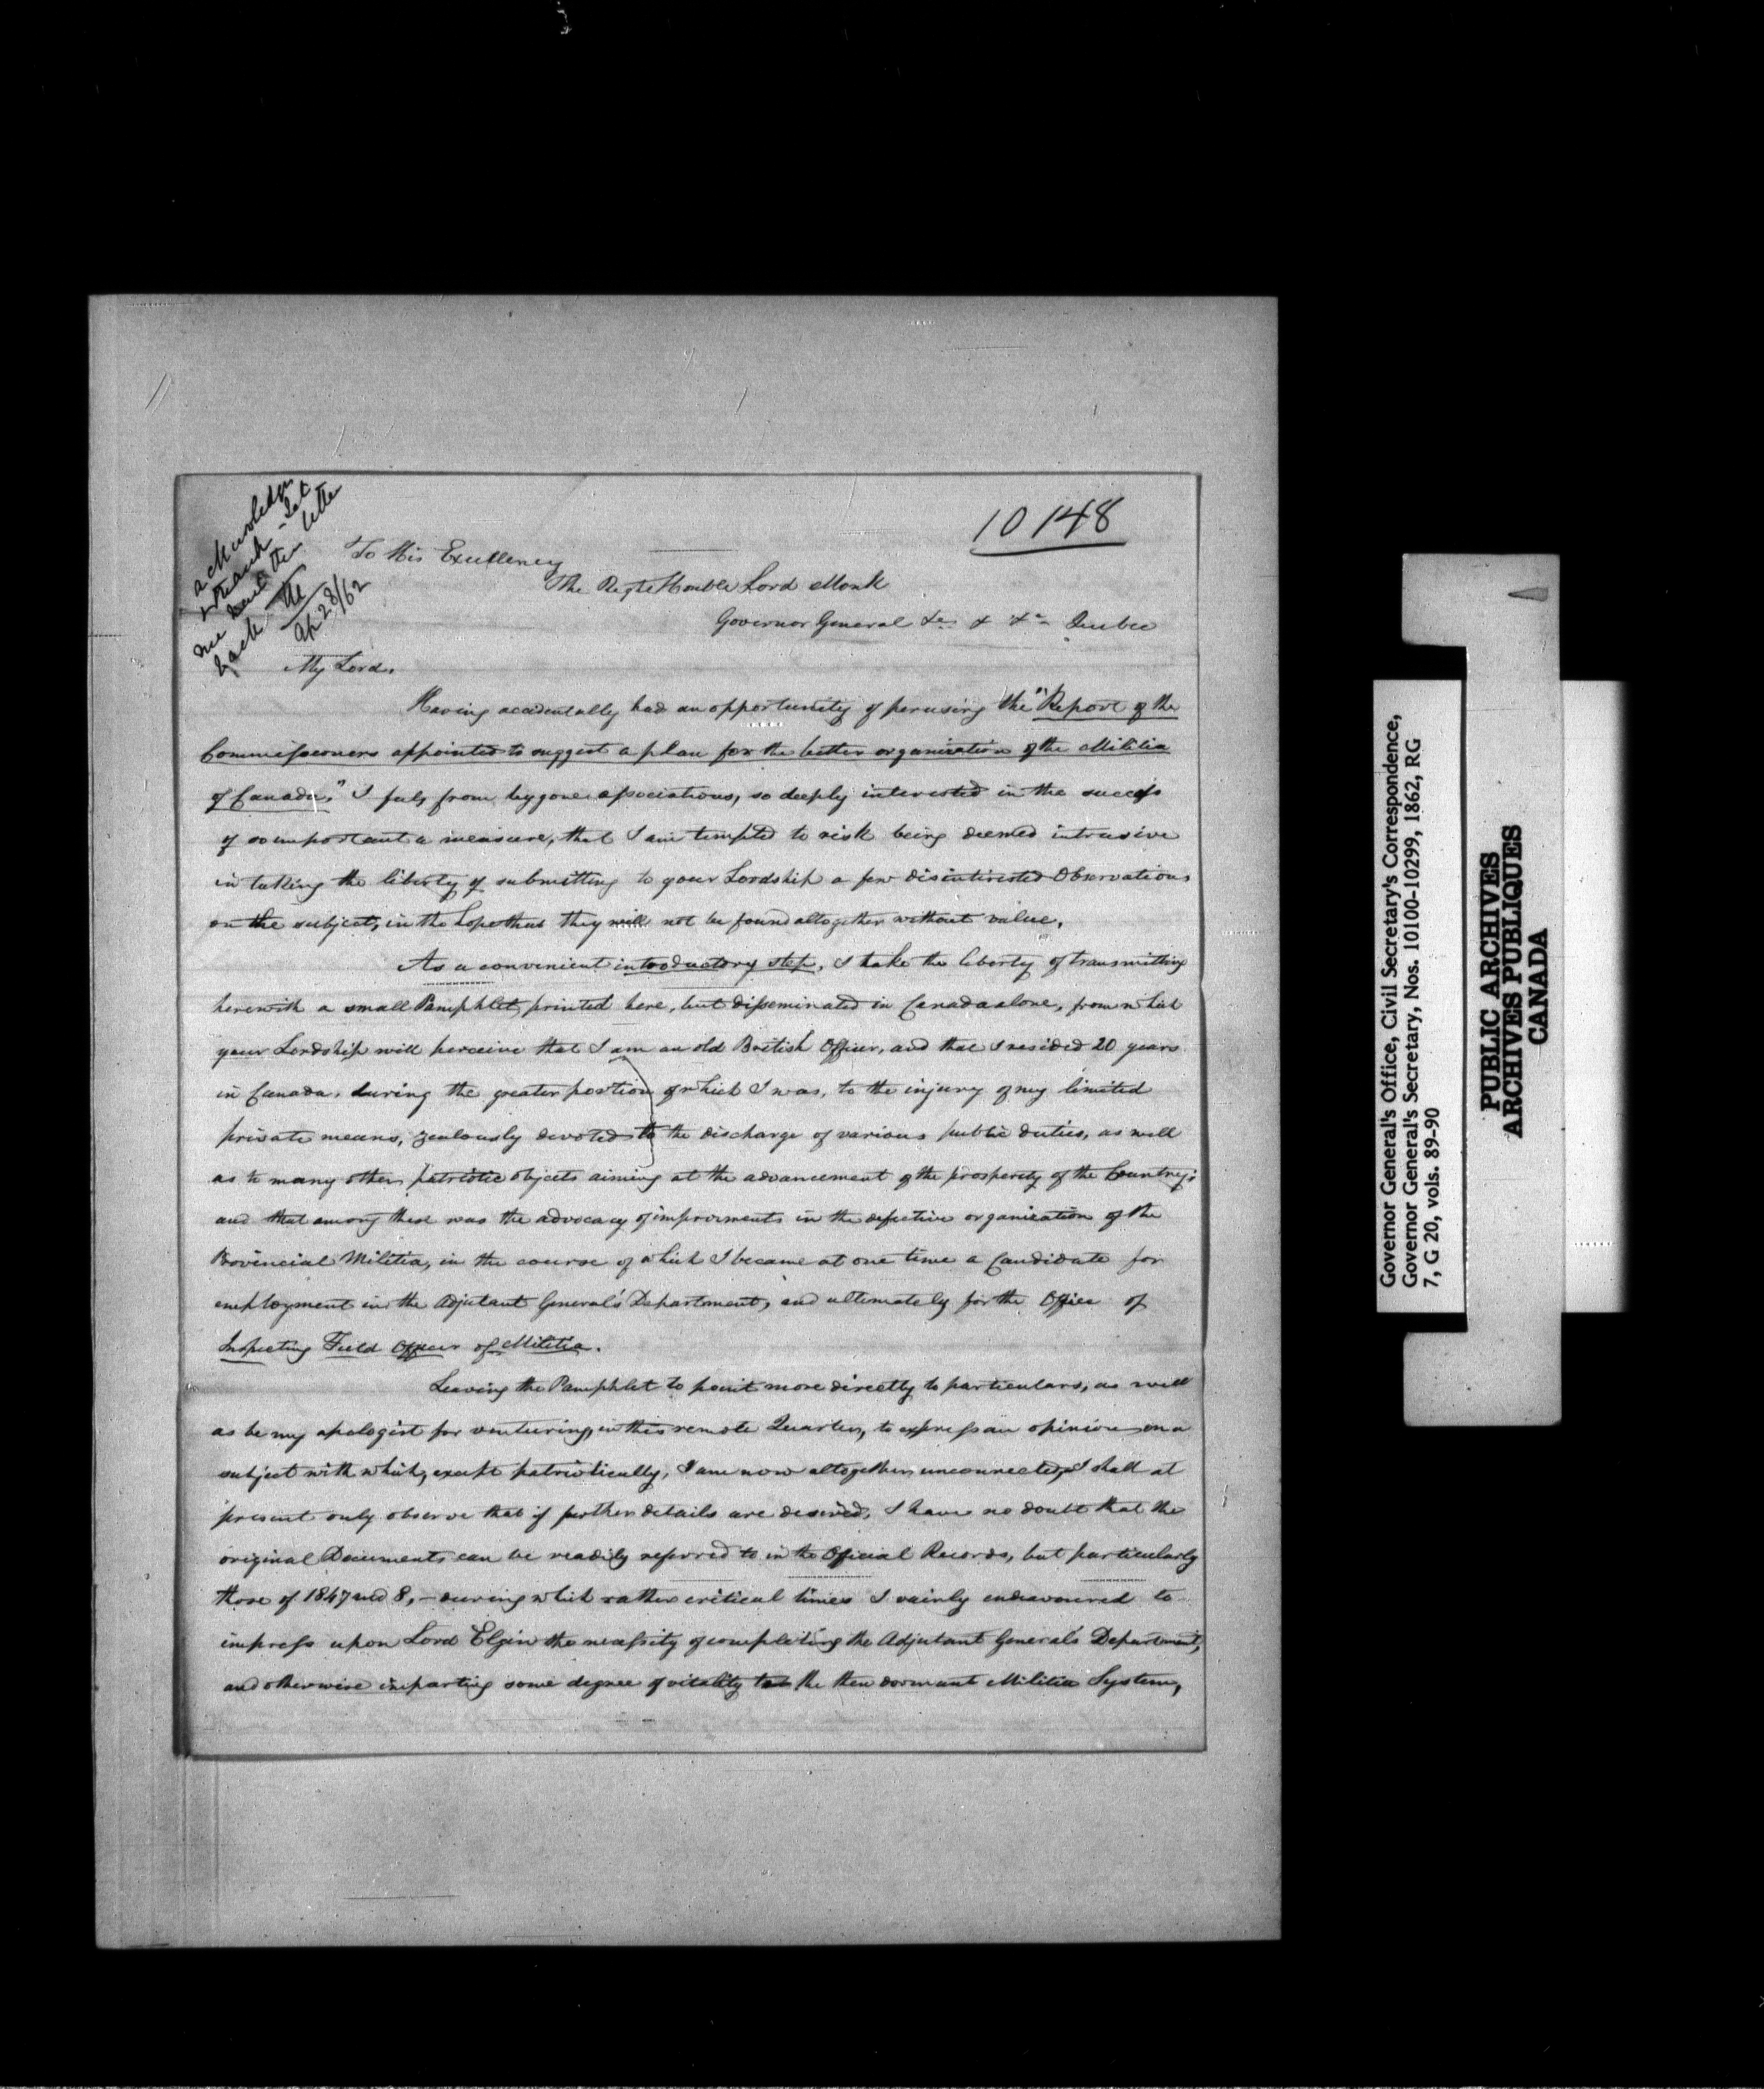 10148
acknowledge
& thank - Let
me have this letter
back
Ap 28/62
To His Excellency
The Right Honble Lord Monk
Governor General &c & &c Quebec
My Lord,
Having accidentally had an opportunity of perusing the "Report of the
Commissioners appointed to suggest a plan for the better organization of the Militia
of Canada," I feel, from bygone associations, so deeply interested in the success
of so important a measure, that I am tempted to risk being deemed intrusive
in taking the liberty of submitting to your Lordship a few disinterested Observations
on the subject, in the hope that they will not be found altogether without value.
As a convenient introductory step, I take the liberty of transmitting
herewith a small Pamphlet, printed here, but disseminated in Canada alone, from which
your Lordship will perceive that I am an old British Officer, and that I resided 20 years
in Canada, during the greater portion of which I was, to the injury of my limited
private means, zealously devoted to the discharge of various public duties, as well
as to many other patriotic objects aiming at the advancement of the prosperity of the Country;
and that among these was the advocacy of improvements in the defective organization of the
Provincial Militia, in the course of which I became at one time a Candidate for
employment in the Adjutant General's Department, and ultimately for the Office of
Inspecting Field Officer of Militia.
Leaving the Pamphlet to point more directly to particulars, as well
as be my apologist for venturing, in this remote Quarter, to express an opinion on a
subject with which, except patriotically, I am now altogether unconnected, I shall at
present only observe that if further details are desired, I have no doubt that the
original Documents can be readily referred to in the Official Records, but particularly
those of 1847 and 8, - during which rather critical times I vainly endeavoured to
impress upon Lord Elgin the necessity of completing the Adjutant General's Department,
and otherwise imparting some degree of vitality to the then dormant Militia System,
Governor General's Office, Civil Secretary's Correspondence,
Governor General's Secretary, Nos. 10100-10299, 1862, RG
7, G 20, vols. 89-90
PUBLIC ARCHIVES
ARCHIVES PUBLIQUES
CANADA